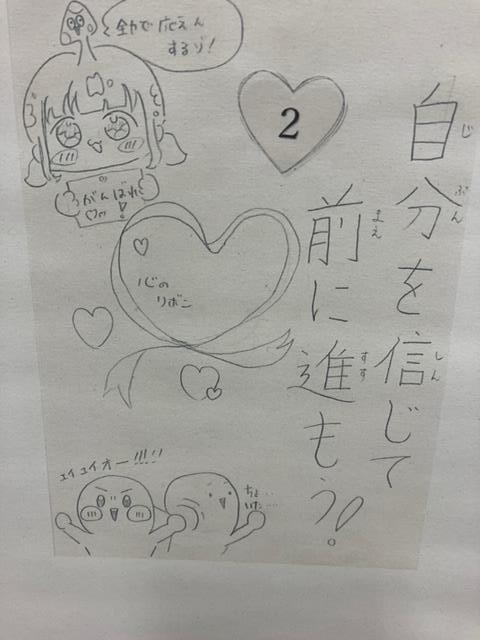 全力で応えん
するゾ!
がんばれ
!
2
自分を信じて
じ ぶん しん
前に進もう!
まえ すす
心の
リボン
エイエイオー!!!!
ちょ…
いた…